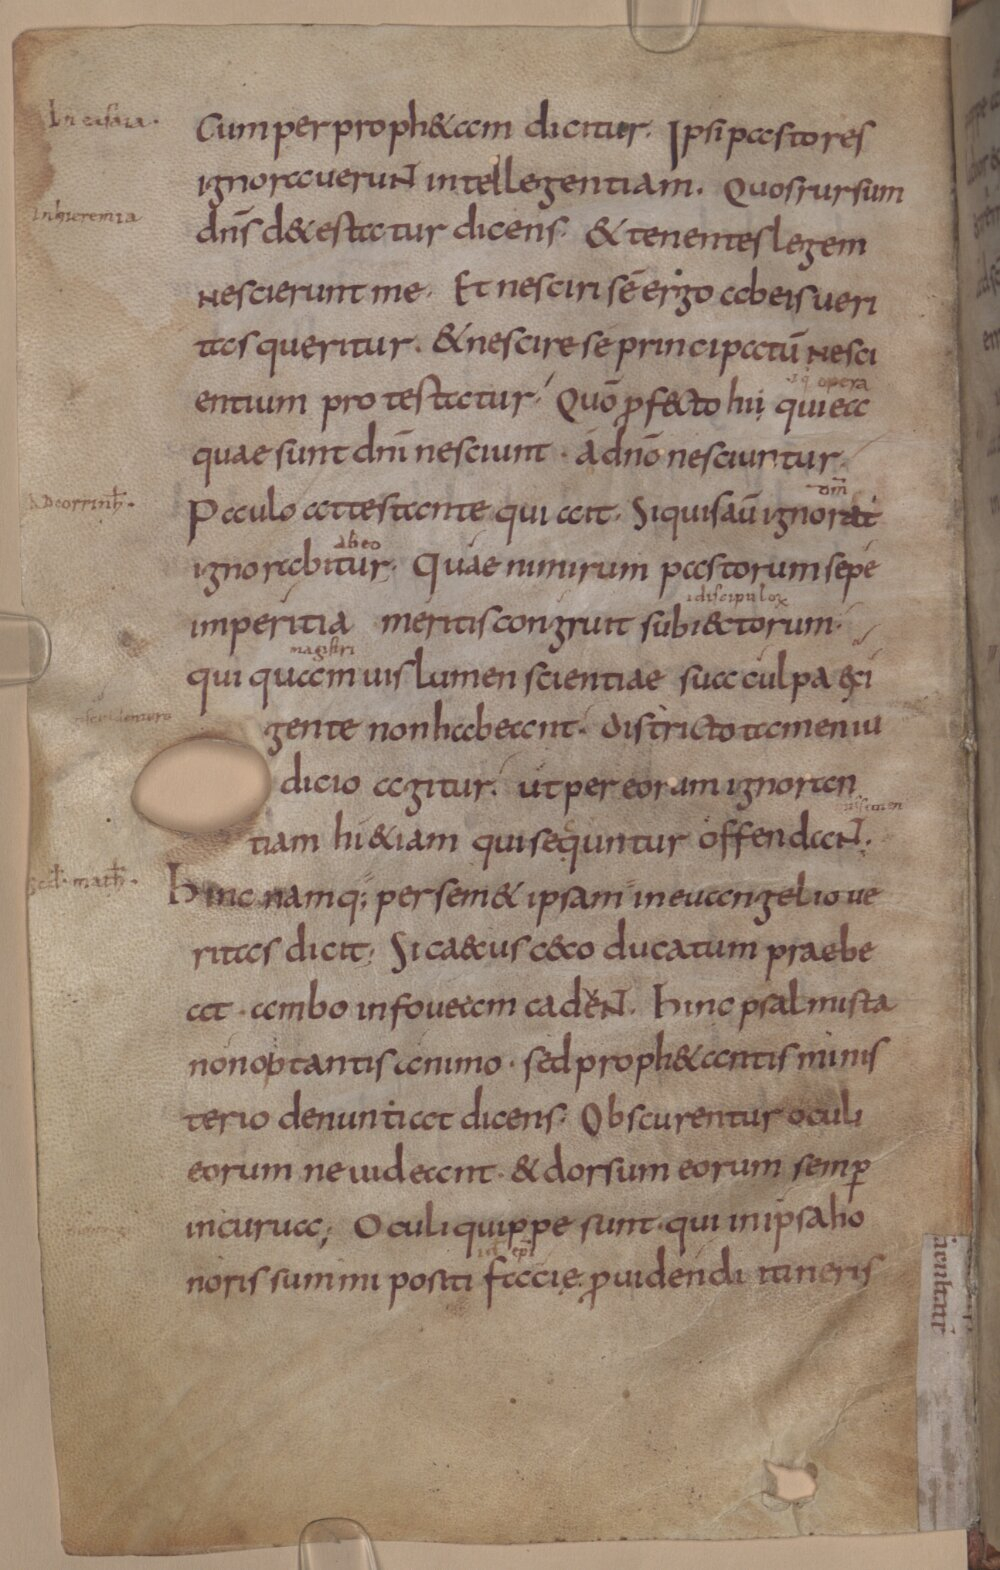 In esaia.
Cum per proph&am dicitur. Ipsi pastores
ignorauerunt intellegentiam. Quos rursum
In hieremia
dn̄s d&estatur dicens. & tenentes legem
nescierunt me. Et nesciri sē ergo ab eis ueri
tas queritur. & nescire sē principatū nesci
opera
entium protestatur. Quō ꝓfecto hii qui ea
quae sunt dn̄i nesciunt. a dn̄o nesciuntur.
Ad corrinth.
Paulo attestante qui ait. Siquis aū ignorat
abeo
ignorabitur. Quae nimirum pastorum sepe
discipuloꝝ
imperitia meritis congruit subiectorum.
magistri
qui quamuis lumen scientiae sua culpa exi
gente non habeant. districto tamen iu
dicio agitur. ut per eorum ignoran
tiam hi &iam qui sequntur offendant.
Hinc namq; per sem&ipsam in euangelio ue
Scd̄. math̄.
ritas dicit. Si caecus caeco ducatum praebe
at. ambo in foueam cadent. Hinc psalmista
non optantis animo. sed proph&antis minis
terio denuntiat dicens. Obscurentur oculi
eorum ne uideant. & dorsum eorum semꝑ
incurua; Oculi quippe sunt. qui in ipsa ho
noris summi positi facie. ꝓuidendi itineris